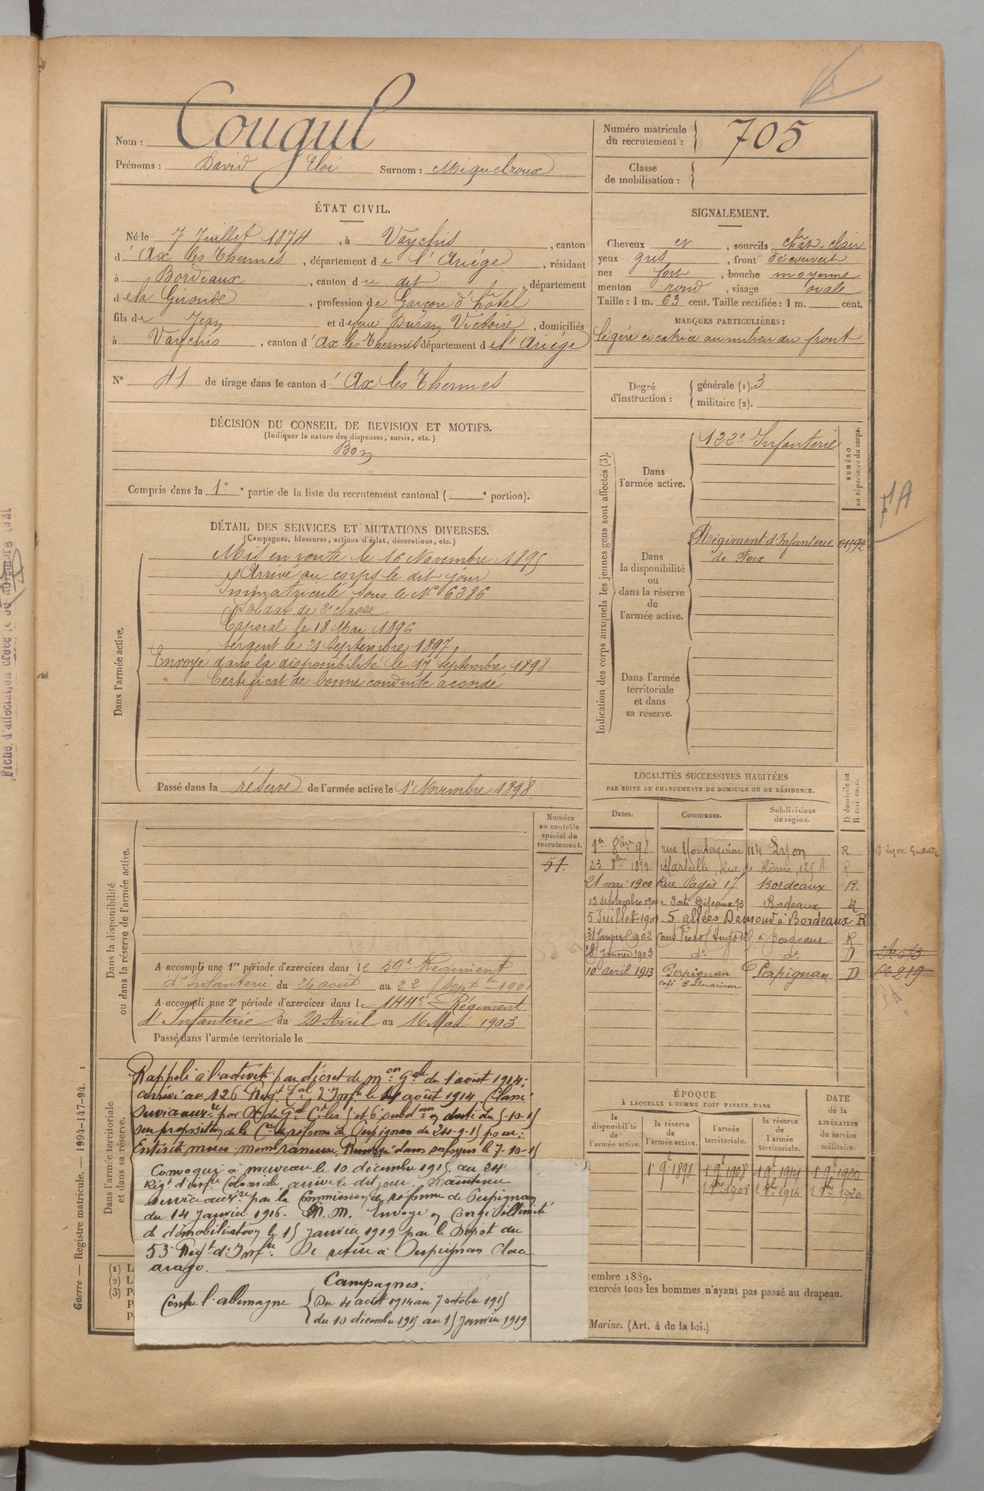 Nom : Cougul
Prénoms : David Eloi Surnom : Miquelroux
Numéro matricule du recrutement : 705
Classe de mobilisation :
ÉTAT CIVIL.
Né le 7 Juillet 1874, à Vaychis, canton
d'Ax les Thermes, département de l'Ariège, résidant
à Bordeaux, canton du dit, département
de la Gironde, profession de Garçon d'hôtel
fils de Jean et de feue Duran Victoire, domiciliés
à Vaychis, canton d'Ax les Thermes département de l'Ariège
N° 41 de tirage dans le canton d'Ax les Thermes
SIGNALEMENT.
Cheveux et, sourcils chât. clair
yeux gris, front découvert
nez fort, bouche moyenne
menton rond, visage ovale
Taille : 1 m. 63 cent. Taille rectifiée : 1 m. cent.
MARQUES PARTICULIÈRES :
Légère cicatrice au milieu du front
Degré d'instruction : générale (1). 3
militaire (2).
DÉCISION DU CONSEIL DE REVISION ET MOTIFS.
(Indiquer la nature des dispenses, sursis, etc.)
Bon
Compris dans la 1e partie de la liste du recrutement cantonal ( e portion).
DÉTAIL DES SERVICES ET MUTATIONS DIVERSES.
(Campagnes, blessures, actions d'éclat, décorations, etc.)
Dans l'armée active.
Mis en route le 16 Novembre 1895
Arrivé au corps le dit jour
Immatriculé sous le N° 6386
Soldat de 2e classe
Caporal le 18 Mai 1896
Sergent le 21 Septembre 1897
Envoyé dans la disponibilité le 17 Septembre 1898
Certificat de bonne conduite accordé
Passé dans la réserve de l'armée active le 1r Novembre 1898
Indication des corps auxquels les jeunes gens sont affectés (3).
NUMÉRO au répertoire du corps.
Dans l'armée active.
122e Infanterie
Dans la disponibilité ou dans la réserve de l'armée active.
Régiment d'Infanterie
de Foix
Dans l'armée territoriale et dans sa réserve.
LOCALITÉS SUCCESSIVES HABITÉES
PAR SUITE DE CHANGEMENTS DE DOMICILE OU DE RÉSIDENCE.
Dates. Communes. Subdivisions de région. D domicile ou R résidence.
1er 8bre 98 rue 114 Lyon R
23 8bre 1899 Marseille, Rue de Rome, 125 A R
21 mai 1900 Rue Pagès 17 Bordeaux R
Bordeaux R
5 Juillet 1901 5 allées Damour à Bordeaux R
31 Janvier 1902 à Bordeaux R
28 Janvier 1903 do do D
10 avril 1913 Perpignan Perpignan D
Dans la disponibilité ou dans la réserve de l'armée active.
Numéro au contrôle spécial du recrutement.
51.
A accompli une 1re période d'exercices dans le 59e Régiment
d'Infanterie du 26 août au 22 Septbre 1901
A accompli une 2e période d'exercices dans le 144e Régiment
d'Infanterie du 20 Avril au 16 Mai 1903
Passé dans l'armée territoriale le
Dans l'armée territoriale et dans sa réserve.
Rappelé à l'activité par décret de mon gale de 1 août 1914;
arrivé au 126 Regt Tal d'Infie le 4 août 1914 Classé
Service auxre
sur proposition de la Con de réforme de Perpignan du 24-9-15 pour:
Entérite muco membraneuse. Renvoyé dans ses foyers le 7-10-15
Convoqué à nouveau le 10 décembre 1915 au 24
Regt d'Infie Coloniale arrivé le dit jour. Maintenu
Service auxre par la Commission de réforme de Perpignan
du 14 Janvier 1916. M.M. Envoyé en Congé illimité
de démobilisation le 15 Janvier 1919 par le Dépôt du
53 Regt d'Infie. Se retire à Perpignan place
arago.
Campagnes:
Contre l'allemagne Du 4 août 1914 au 7 octobre 1915
du 10 décembre 1915 au 15 Janvier 1919
ÉPOQUE
À LAQUELLE L'HOMME DOIT PASSER DANS
la disponibilité de l'armée active. la réserve de l'armée active. l'armée territoriale. la réserve de l'armée territoriale. DATE de la LIBÉRATION du service militaire.
1r 9bre 1898 1r 9bre 1908 1r 9bre 1914 1r 9bre 1920
1r 8bre 1908 1r 8bre 1914 1r 8bre 1920
cembre 1889.
exercés tous les hommes n'ayant pas passé au drapeau.
Marine. (Art. 4 de la loi.)
(1) L
(2) L
(3) P
Guerre — Registre matricule. — 1994-147-94. 1